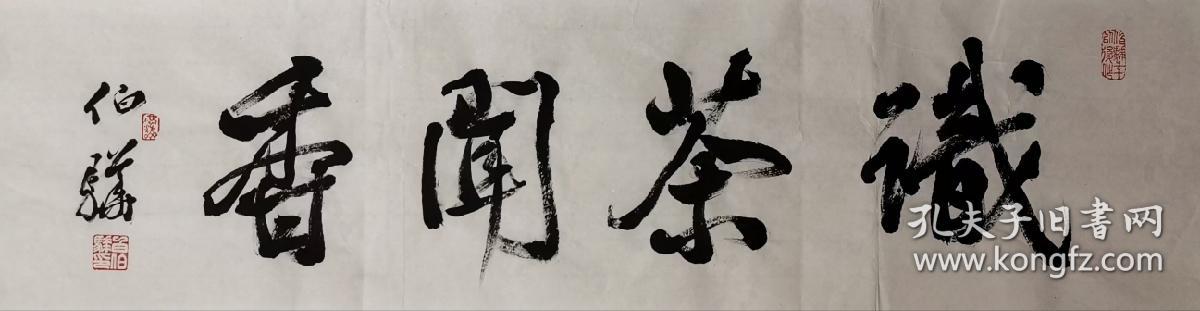 識茶聞香
伯驊
孔夫子旧书网
www.kongfz.com